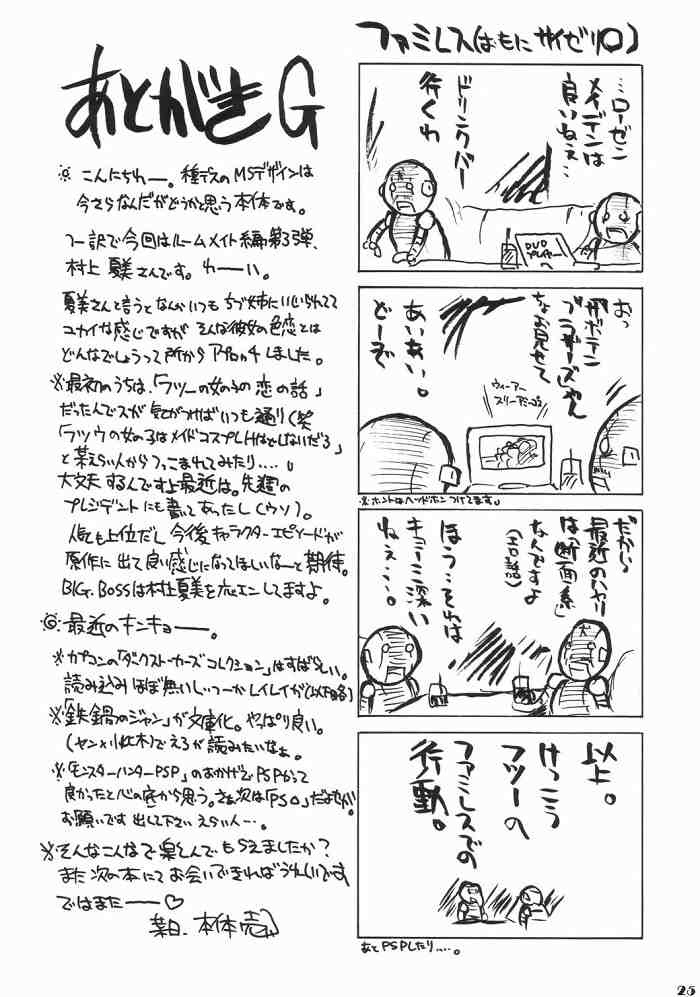 あとがきG
☀ こんにちわー。種デスのMSデザインは
今さらなんだがどうかと思う本体です。
つー訳で今回はルームメイト編第3弾、
村上夏美さんです。わーい。
夏美さんと言うとなんかいつもちづ姉にいじられてて
ユカイな感じですが そんな彼女の色恋とは
どんなでしょうって所からアプローチしました。
※最初のうちは、「フツーの女の子の恋の話」
だったんでスが 気がつけばいつも通り(笑
「フツウの女の子はメイドコスプレHはしないだろ」
と某えらい人からつっこまれてみたり‥‥。
大丈夫 するんですよ最近は。先週の
プレジデントにも書いてあったし(ウソ)。
人気も上位だし 今後キャラクターエピソードが
原作に出て良い感じになってほしいなーと期待。
BIG. BOSSは村上夏美を応エンしてますよ。
◎ 最近のキンキョー。
※カプコンの「ダークストーカーズコレクション」はすばらしい。
読み込みほぼ無いしっつーかレイレイが(以下略)
※「鉄鍋のジャン」が文庫化。やっぱり良い。
(ヤン×小此木)でえろが読みたいなぁ。
※「モンスターハンターPSP」のおかげでPSPかって
良かったと心の底から思う。さぁ次は「PSO」だよせがわ
お願いです 出して下さい えらい人ー。
※そんなこんなで楽しんでもらえましたか?
また次の本にてお会いできればうれしいです
ではまたー♡
某日. 本体売
ファミレス(おもにサイゼリ○)
…ローゼン
メイデンは
良いねぇ…
ドリンクバー
行くわ
DVD
プレイヤーへ
おっ
「サボテン
ブラザーズ」じゃん
ちょお見せて
あいあい。
どーぞ
ウィーアー
スリーアミーゴス
※ホントはヘッドホンつけてます。
だから
最近のハヤリ
は「断面系」
なんですよ
(エロ話)
ほう‥それは
キョーミ深い
ねぇ…
以上。
けっこう
フツーの
ファミレスでの
行動。
あとPSPしたり‥‥。
25